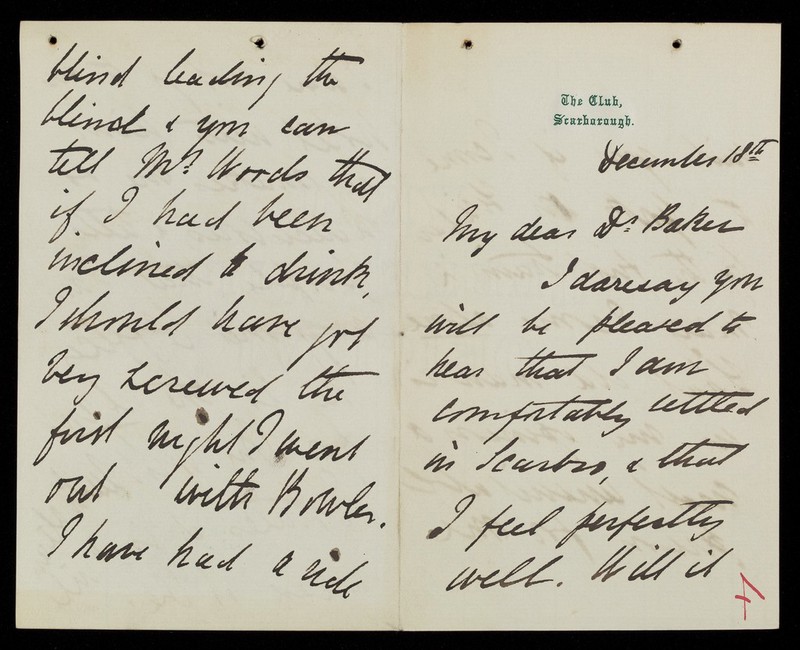 The Club,
Scarborough.
December 18th
My dear Dr. Baker
I daresay you
will be pleased to
hear that I am
comfortably settled
in Scarbro, & that
I feel perfectly
well. Will it
4
blind leading the
blind & you can
tell Mrs. Woods that
if I had been
inclined to drink,
I should have got
very screwed the
first night I went
out with Bowler.
I have had a